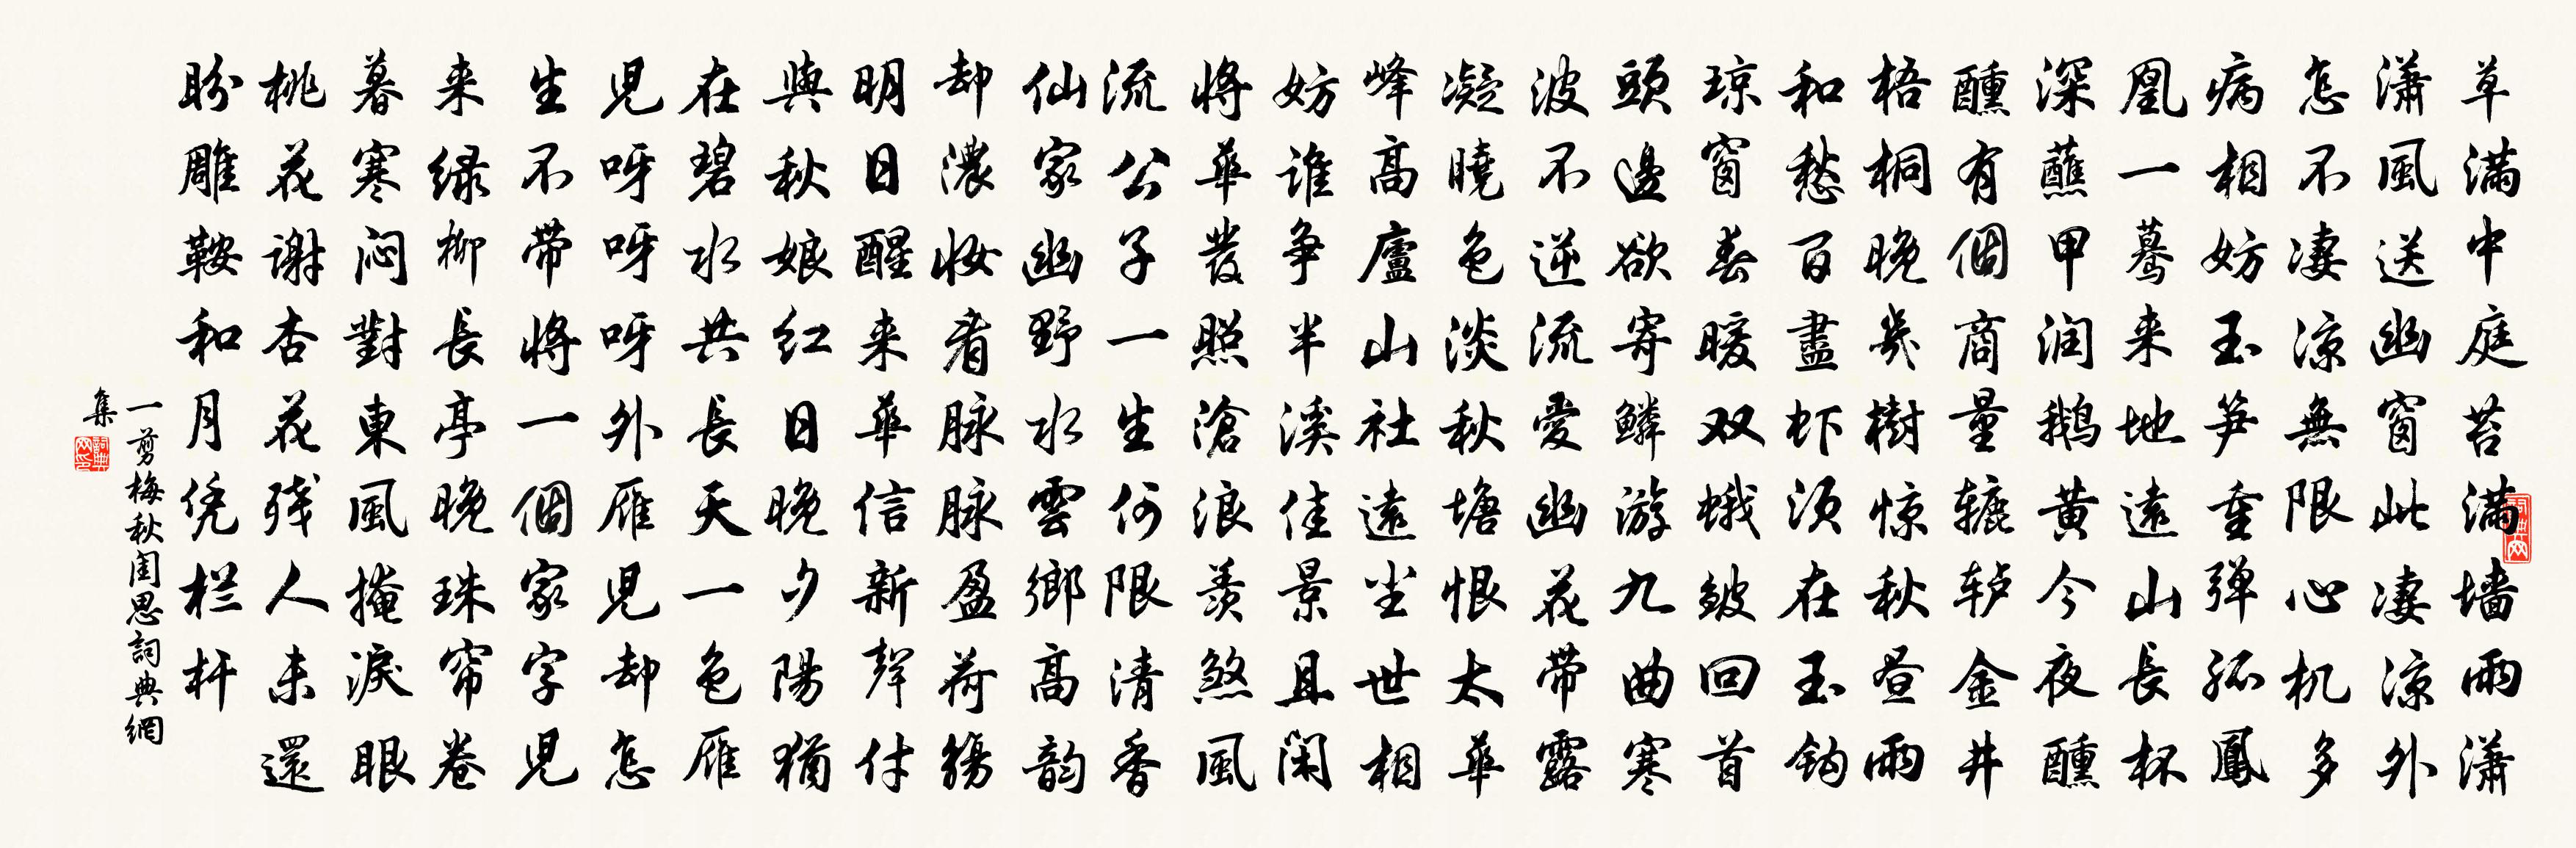 草滿中庭苔滿墙雨潇
潇風送幽窗此凄凉外
怎不凄凉無限心机多
病相妨玉笋重弹孤鳳
凰一蓦来地遠山長杯
深蘸甲润鹅黄今夜醺
醺有個商量辘轳金井
梧桐晚幾樹惊秋昼雨
和愁百盡虾须在玉钩
琼窗春暖双蛾皱回首
頭邊欲寄鳞游九曲寒
波不逆流愛幽花带露
凝曉色淡秋塘恨太華
峰高廬山社遠尘世相
妨谁争半溪佳景且闲
将華發照滄浪羨煞風
流公子一生何限清香
仙家幽野水雲鄉高韵
却濃妝看脉脉盈荷觴
明日醒来華信新聲付
與秋娘红日晚夕陽猶
在碧水共長天一色雁
児呀呀呀外雁児却怎
生不带将一個家字児
来绿柳長亭晚珠帘卷
暮寒闷對東風掩淚眼
桃花谢杏花残人未還
盼雕鞍和月凭栏杆
一剪梅秋闺思詞典網
集